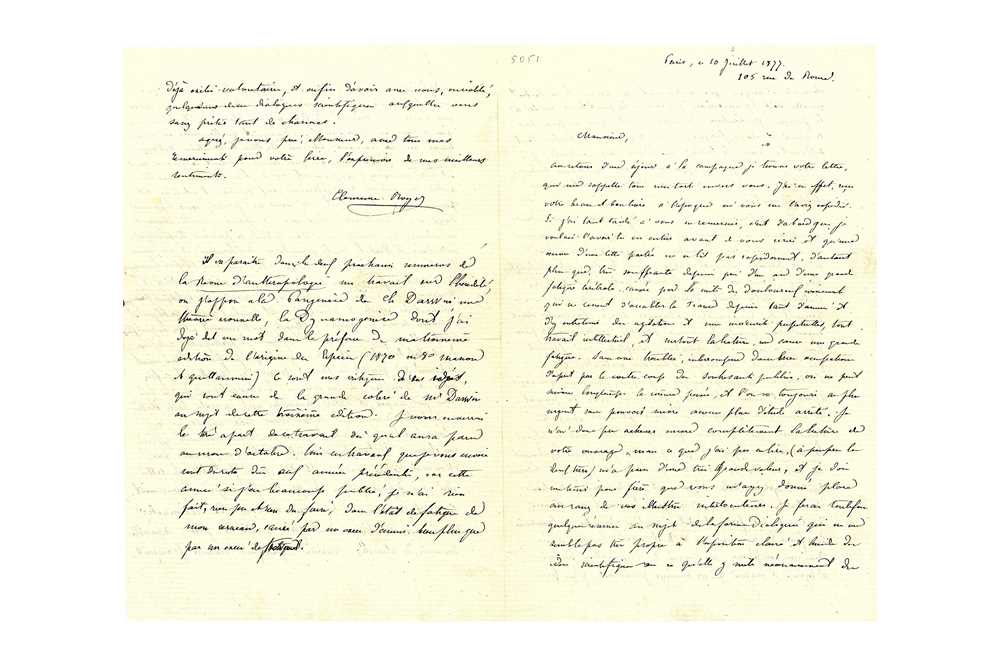 5051
Paris, le 10 Juillet 1877.
105 rue de Rome.
Monsieur,
Au retour d'un séjour à la campagne je trouve votre lettre,
qui me rappelle tous mes torts envers vous. J'ai en effet, reçu
votre beau et bon livre à l'époque où vous me l'avez expédié.
Si j'ai tant tardé à vous en remercier, c'est d'abord que je
voulais l'avoir lu en entier avant de vous écrire et qu'une
œuvre d'une telle portée ne se lit pas rapidement, d'autant
plus que, très souffrante depuis près d'un an d'une grande
fatigue cérébrale, causée par la suite de douloureux
qui ne cessent d'accabler la France depuis tant d'années et
d'y entretenir des agitations et une perpétuelles, tout
travail intellectuel, et surtout la lecture, me cause une grande
fatigue. Sans cesse troublée, interrompue dans mes occupations
par le contre coup des événements publics, on ne peut
suivre longtemps la même pensée, et l'on va toujours au plus
urgent sans pouvoir suivre aucun plan d'étude arrêté. Je
n'ai donc pu achever encore complètement la lecture de
votre ouvrage, mais ce que j'ai pu en lire, (à peu près les
deux tiers) m'a paru d'une très grande valeur, et je dois
me tenir pour fière que vous m'ayez donné place
au rang de vos illustres interlocuteurs. Je ferai toutefois
quelques réserves au sujet de la forme dialoguée qui ne me
semble pas très propre à l'exposition claire et des
idées scientifiques en ce qu'elle y mêle nécessairement des
déjà exilée volontaire, et enfin d'avoir avec vous,
quelques uns de ces dialogues scientifiques auxquels vous
savez prêter tant de charmes.
Agréez, je vous prie, Monsieur, avec tous mes
remerciements pour votre livre, l'expression de mes meilleurs
sentiments.
Clémence Royer
Il va paraître dans le deux prochains numéros de
la Revue d'anthropologie un travail sur l'hérédité,
où j'oppose à la Pangenèse de Ch. Darwin une
théorie nouvelle, la Dynamogenèse dont j'ai
déjà dit un mot dans la préface de ma troisième
édition de l'Origine des Espèces (1870 in 8° Masson
et Guillaumin) Ce sont mes critiques à ce sujet,
qui sont cause de la grande colère de Mr Darwin
au sujet de cette troisième édition. Je vous enverrai
le tiré à part de ce travail dès qu'il aura paru
au mois d'octobre. Tous ces travaux que je vous envoie
sont du reste dûs aux années précédentes, car cette
année si j'ai beaucoup publié, je n'ai rien
fait, rien pu faire, dans l'état de fatigue de
mon cerveau, causé par un excès d'ennui bien plus que
par un excès de